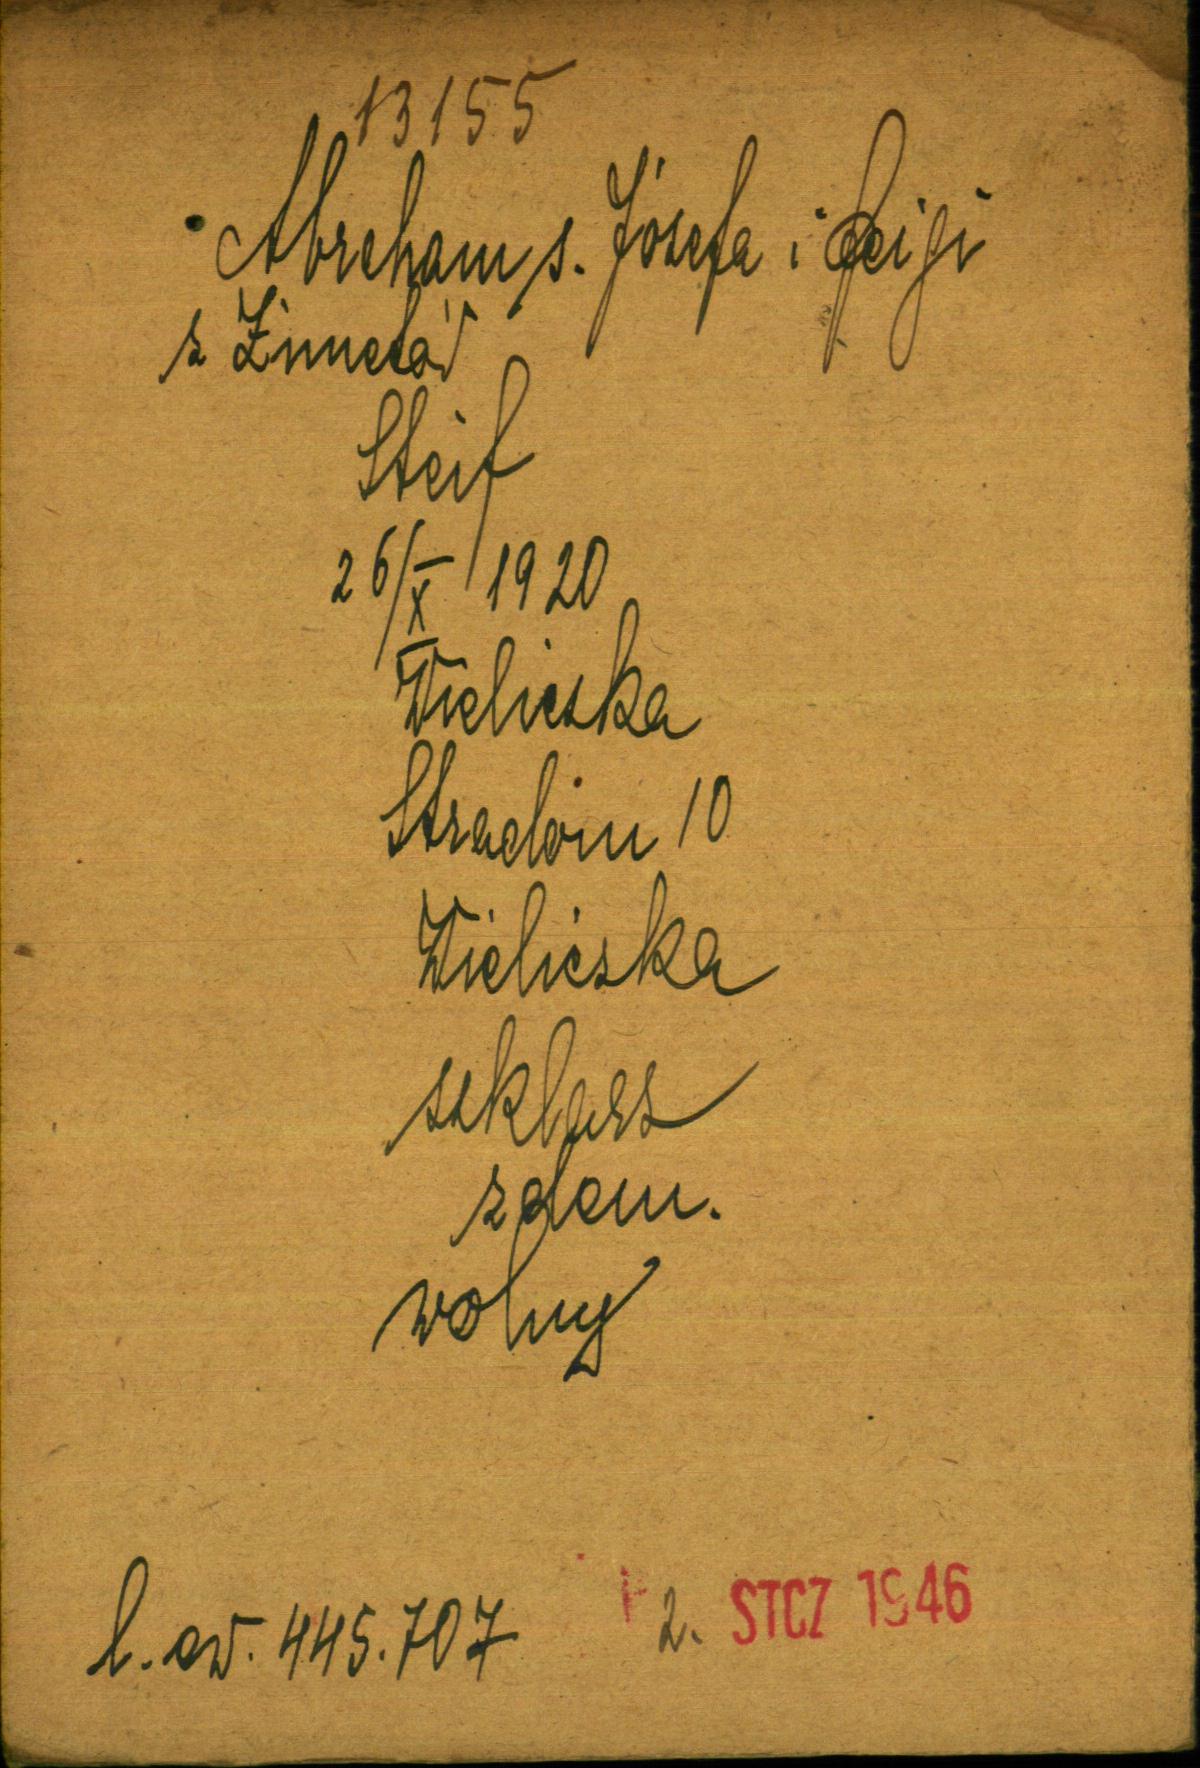 13155
Abraham s. Józefa i Feigi
z Zimetów
Steif
26/X 1920
Wieliczka
Stradom 10
Wieliczka
szklarz
zdem.
wolny
l. ew. 445.707
2. STCZ 1946